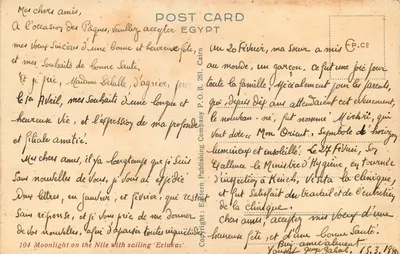 POST CARD
EGYPT
P.C8
Mes chers amis,
A l'occasion des Pâques, veuillez accepter
mes vœux sincères d'une bonne et heureuse fête,
et mes souhaits de bonne santé,
Et je prie, Madame d'agréer, pour
le Avril, mes souhaits d'une longue et
heureuse vie, et l'expression de ma profonde
et filiale amitié.
Mes chers amis, il y a longtemps que je suis
sans nouvelles de vous, je vous ai expédié
Deux lettres, en janvier, et février, qui restent
sans réponse, et je vous prie de me donner
de vos nouvelles, afin d'apaiser toutes inquiétudes
104 Moonlight on the Nile with sailing
Copyright: Eastern Publishing Company P.O.B. 261, Cairo
Un 20 Février, ma sœur a mis
au monde, un garçon, ce fut une joie pour
toute la famille, spécialement pour les parents,
qui, depuis dix ans attendaient cet événement,
le nouveau-né, fut nommé qui
veut dire Mon Orient, symbole de horizon
lumineux et Le 27 Février, son
Excellence le Ministre d'Hygiène, en tournée
d'inspection à visita la clinique,
et fut satisfait du travail et de l'entretien
de la clinique.
Chers amis, acceptez mes vœux d'une
heureuse fête, et d'une bonne santé.
Bien amicalement
15.3.